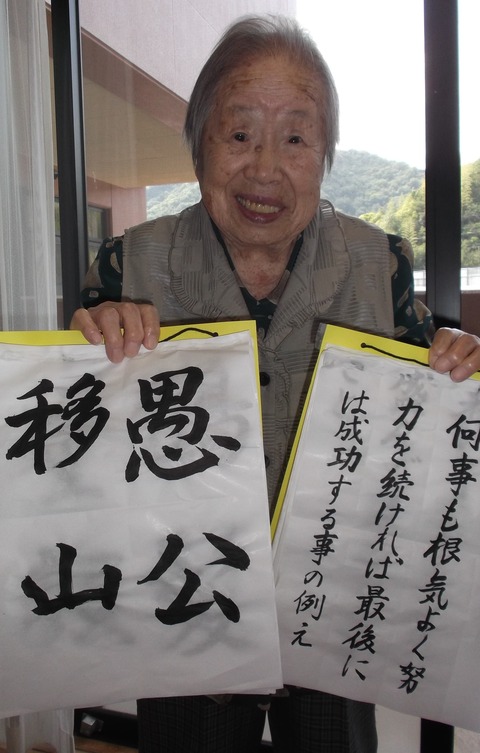 愚公
移山
何事も根気よく努
力を続ければ最後に
は成功する事の例え